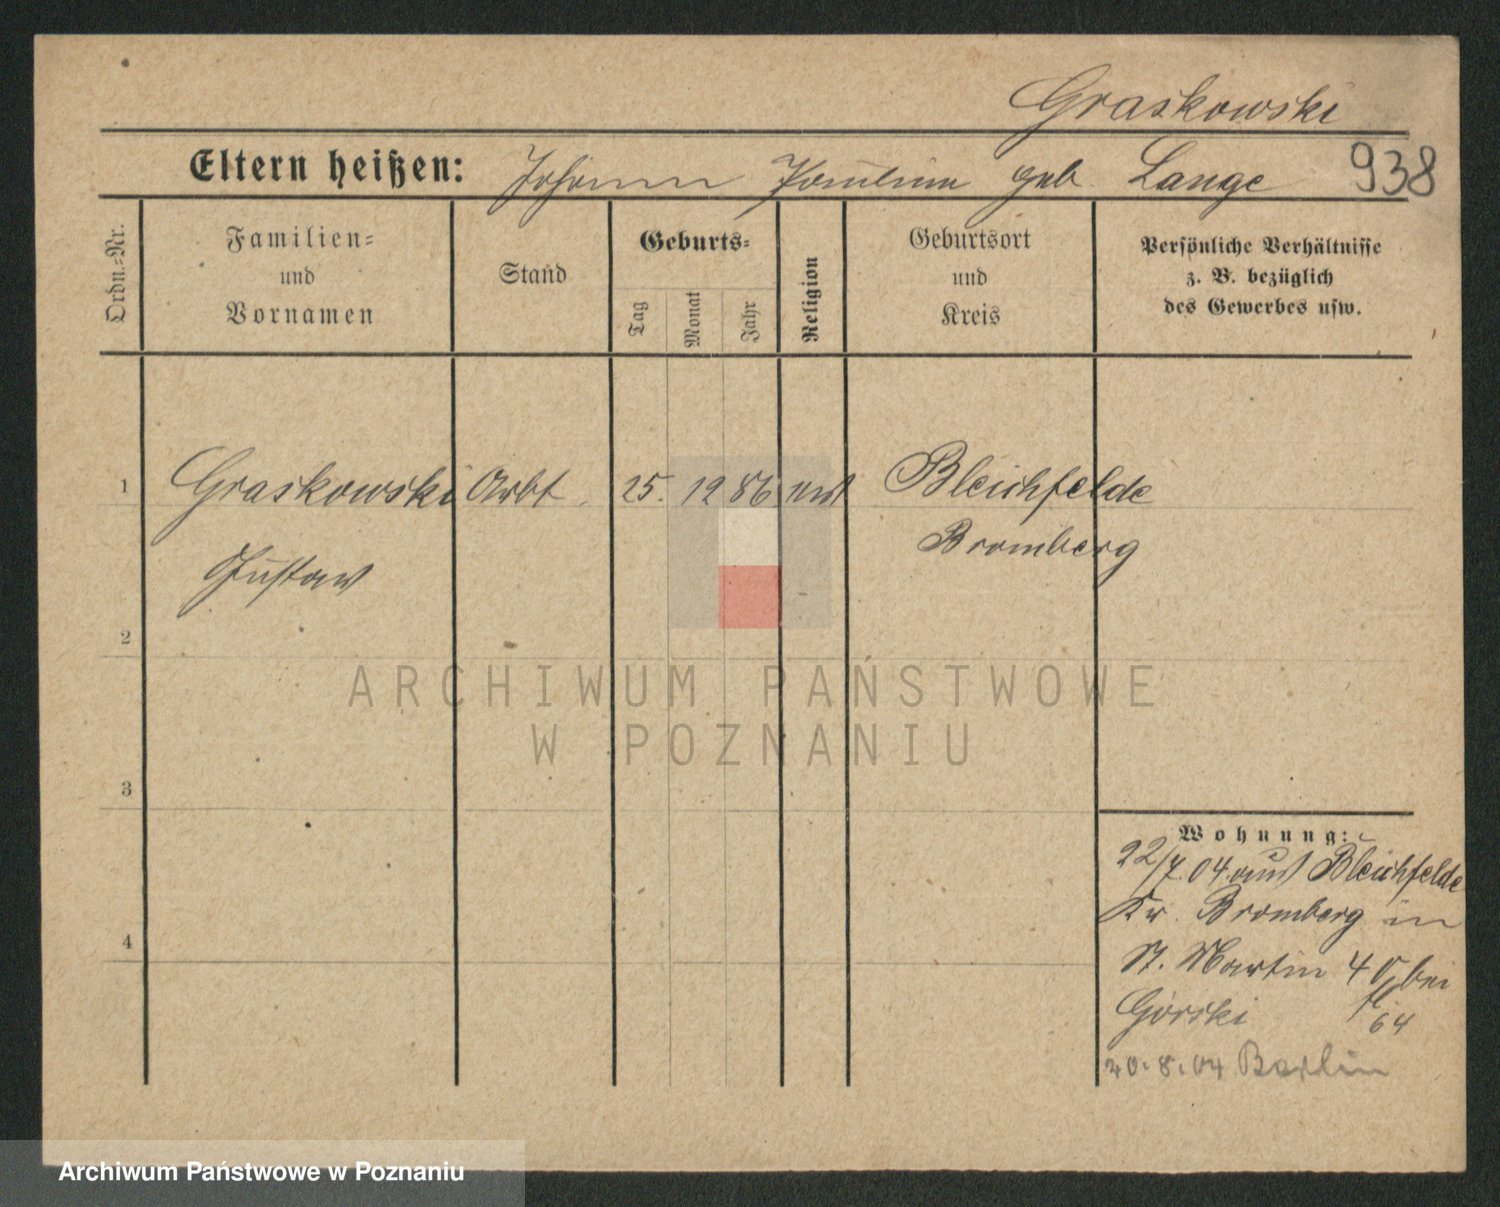 Graskowski
Eltern heißen: Johann Paulina geb Lange 938
Ordn.-Nr.
Familien-
und
Vornamen
Stand
Geburts-
Tag
Monat
Jahr
Religion
Geburtsort
und
Kreis
Persönliche Verhältnisse
z. B. bezüglich
des Gewerbes usw.
1 Graskowski Arbt. 25. 12 86 Bleichfelde
Gustaw Bromberg
2
ARCHIWUM PAŃSTWOWE
W POZNANIU
3
Wohnung:
22/7 04 aus Bleichfelde
Kr. Bromberg in
St. Martin 40 bei
Górski
64
4
20.8.04 Berlin
Archiwum Państwowe w Poznaniu